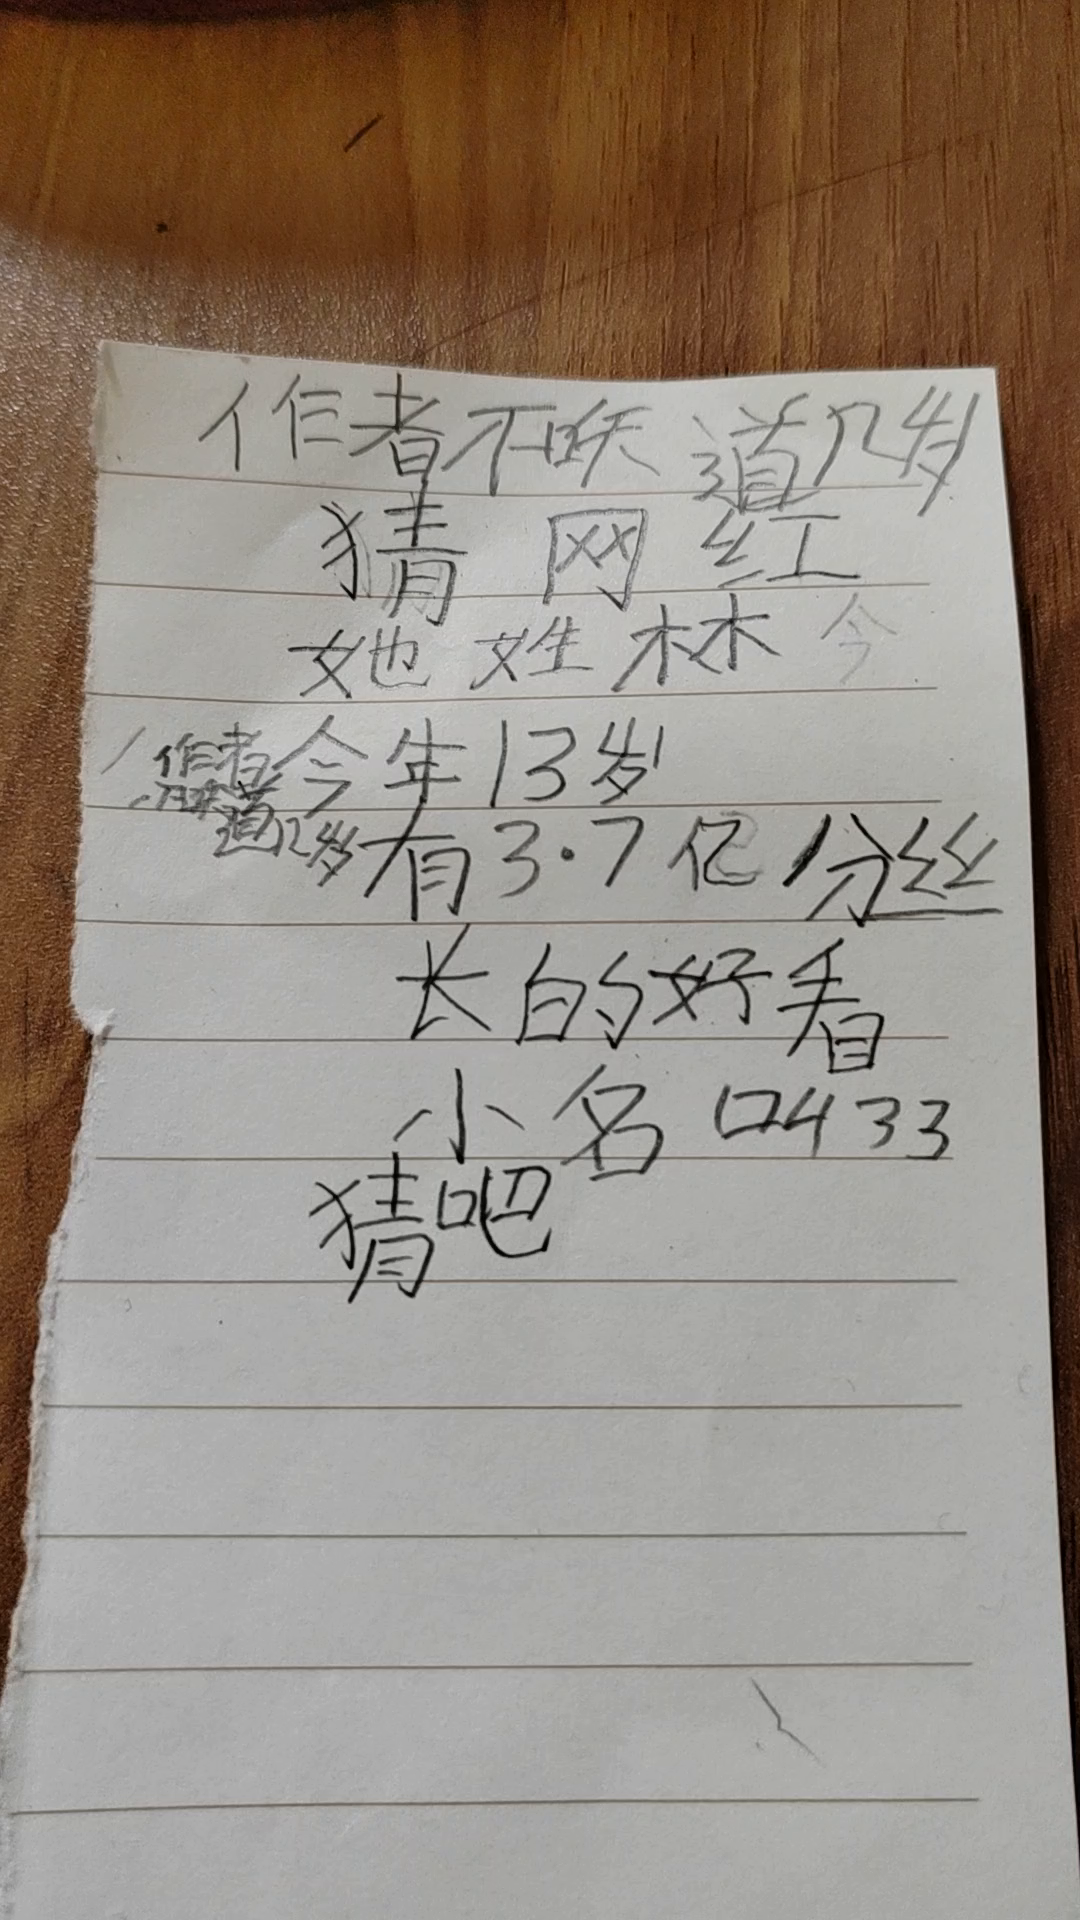 作者不知道几岁
猜网红
她姓林 今
作者今年13岁
道几岁
有3.7亿分丝
长的好看
小名口433
猜吧